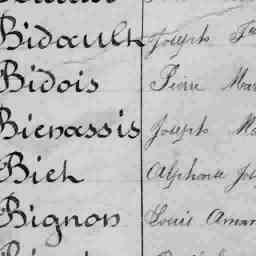 Bidault Joseph
Bidois Pierre Mar
Bienassis Joseph
Bieh Alphonse Jos
Bignon Louis Aman